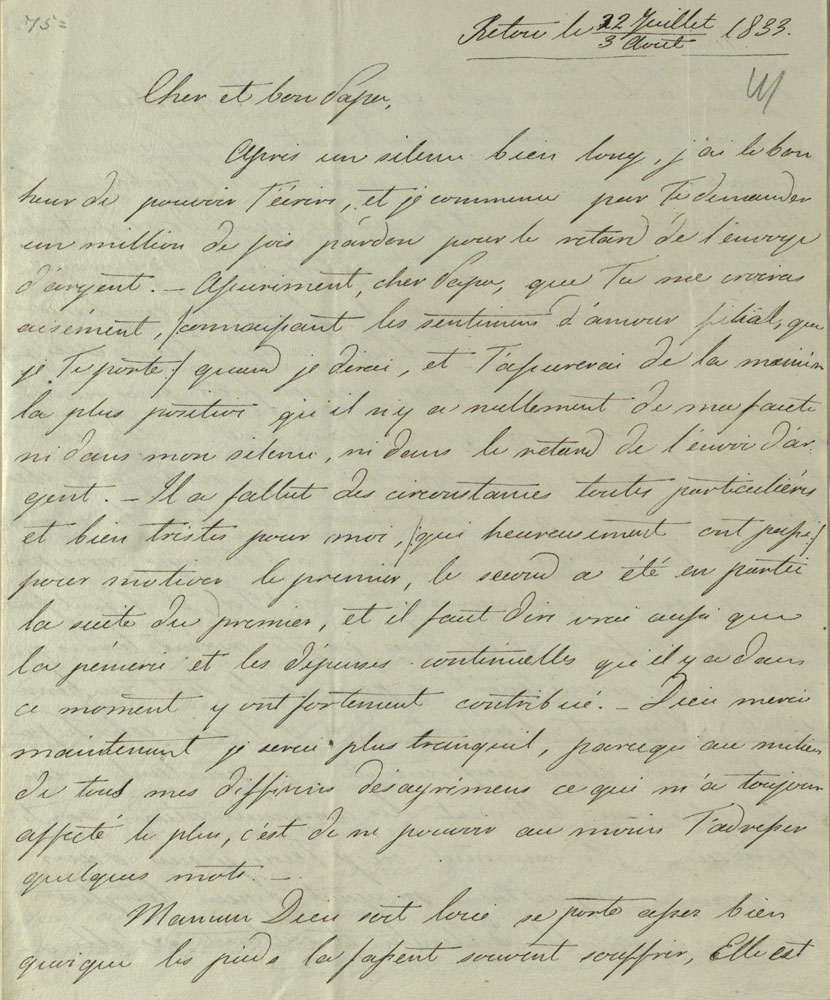 75=
Retow le 22 Juillet / 3 Août 1833.
Cher et bon Papa,
Après un silence bien long, j'ai le bon
heur de pouvoir T'écrire, et je commence par Te demander
un million de fois pardon pour le retard de l'envoye
d'argent. — Assurément, cher Papa, que Tu me croiras
aisément, /:connaissant les sentimens d'amour filial, que
je Te porte:/ quand je dirai, et T'assurerai de la manière
la plus positive qu'il n'y a nullement de ma faute
ni dans mon silence, ni dans le retard de l'envoi d'ar-
gent. — Il a fallut des circonstances toutes particulières
et bien tristes pour moi, /:qui heureusement ont passé:/
pour motiver le premier, le second a été en partie
la suite du premier, et il faut dire vrai aussi que
la pénurie et les dépenses continuelles qu'il y a dans
ce moment y ont fortement contribué. — Dieu merci
maintenant je serai plus tranquil, parcequ'au milieu
de tous mes différens désagrémens ce qui m'a toujours
affecté le plus, c'est de ne pouvoir au moins T'adresser
quelques mots. —
Maman Dieu soit loué se porte assez bien
quoique les pieds la fassent souvent souffrir, Elle est